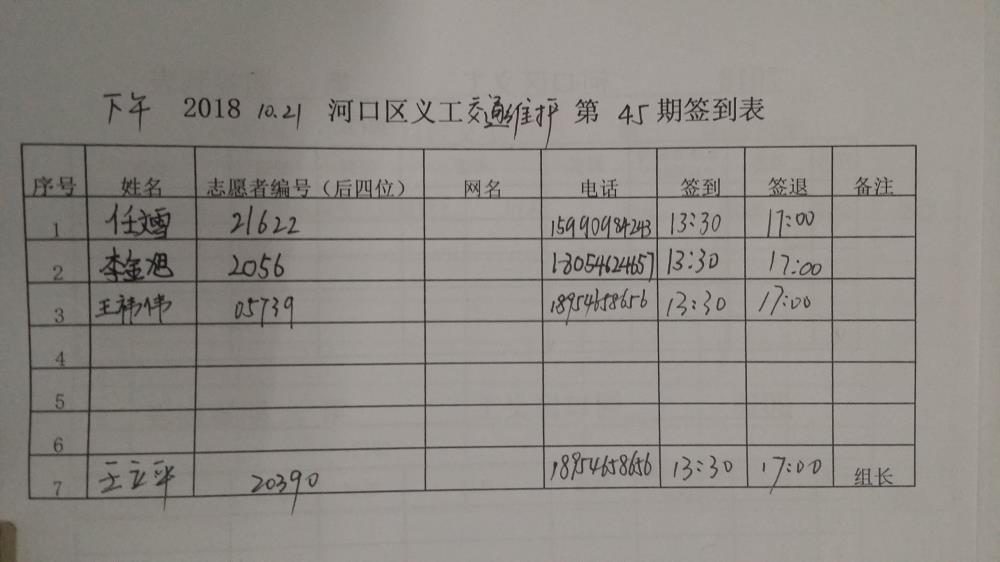 下午 2018 10.21 河口区义工交通维护 第 45 期签到表
序号 姓名 志愿者编号（后四位） 网名 电话 签到 签退 备注
1 任文雪 21622 15990984243 13:30 17:00
2 李金旭 2056 18054624657 13:30 17:00
3 王祎伟 05739 18954658656 13:30 17:00
4
5
6
7 王立平 20390 18954658656 13:30 17:00 组长